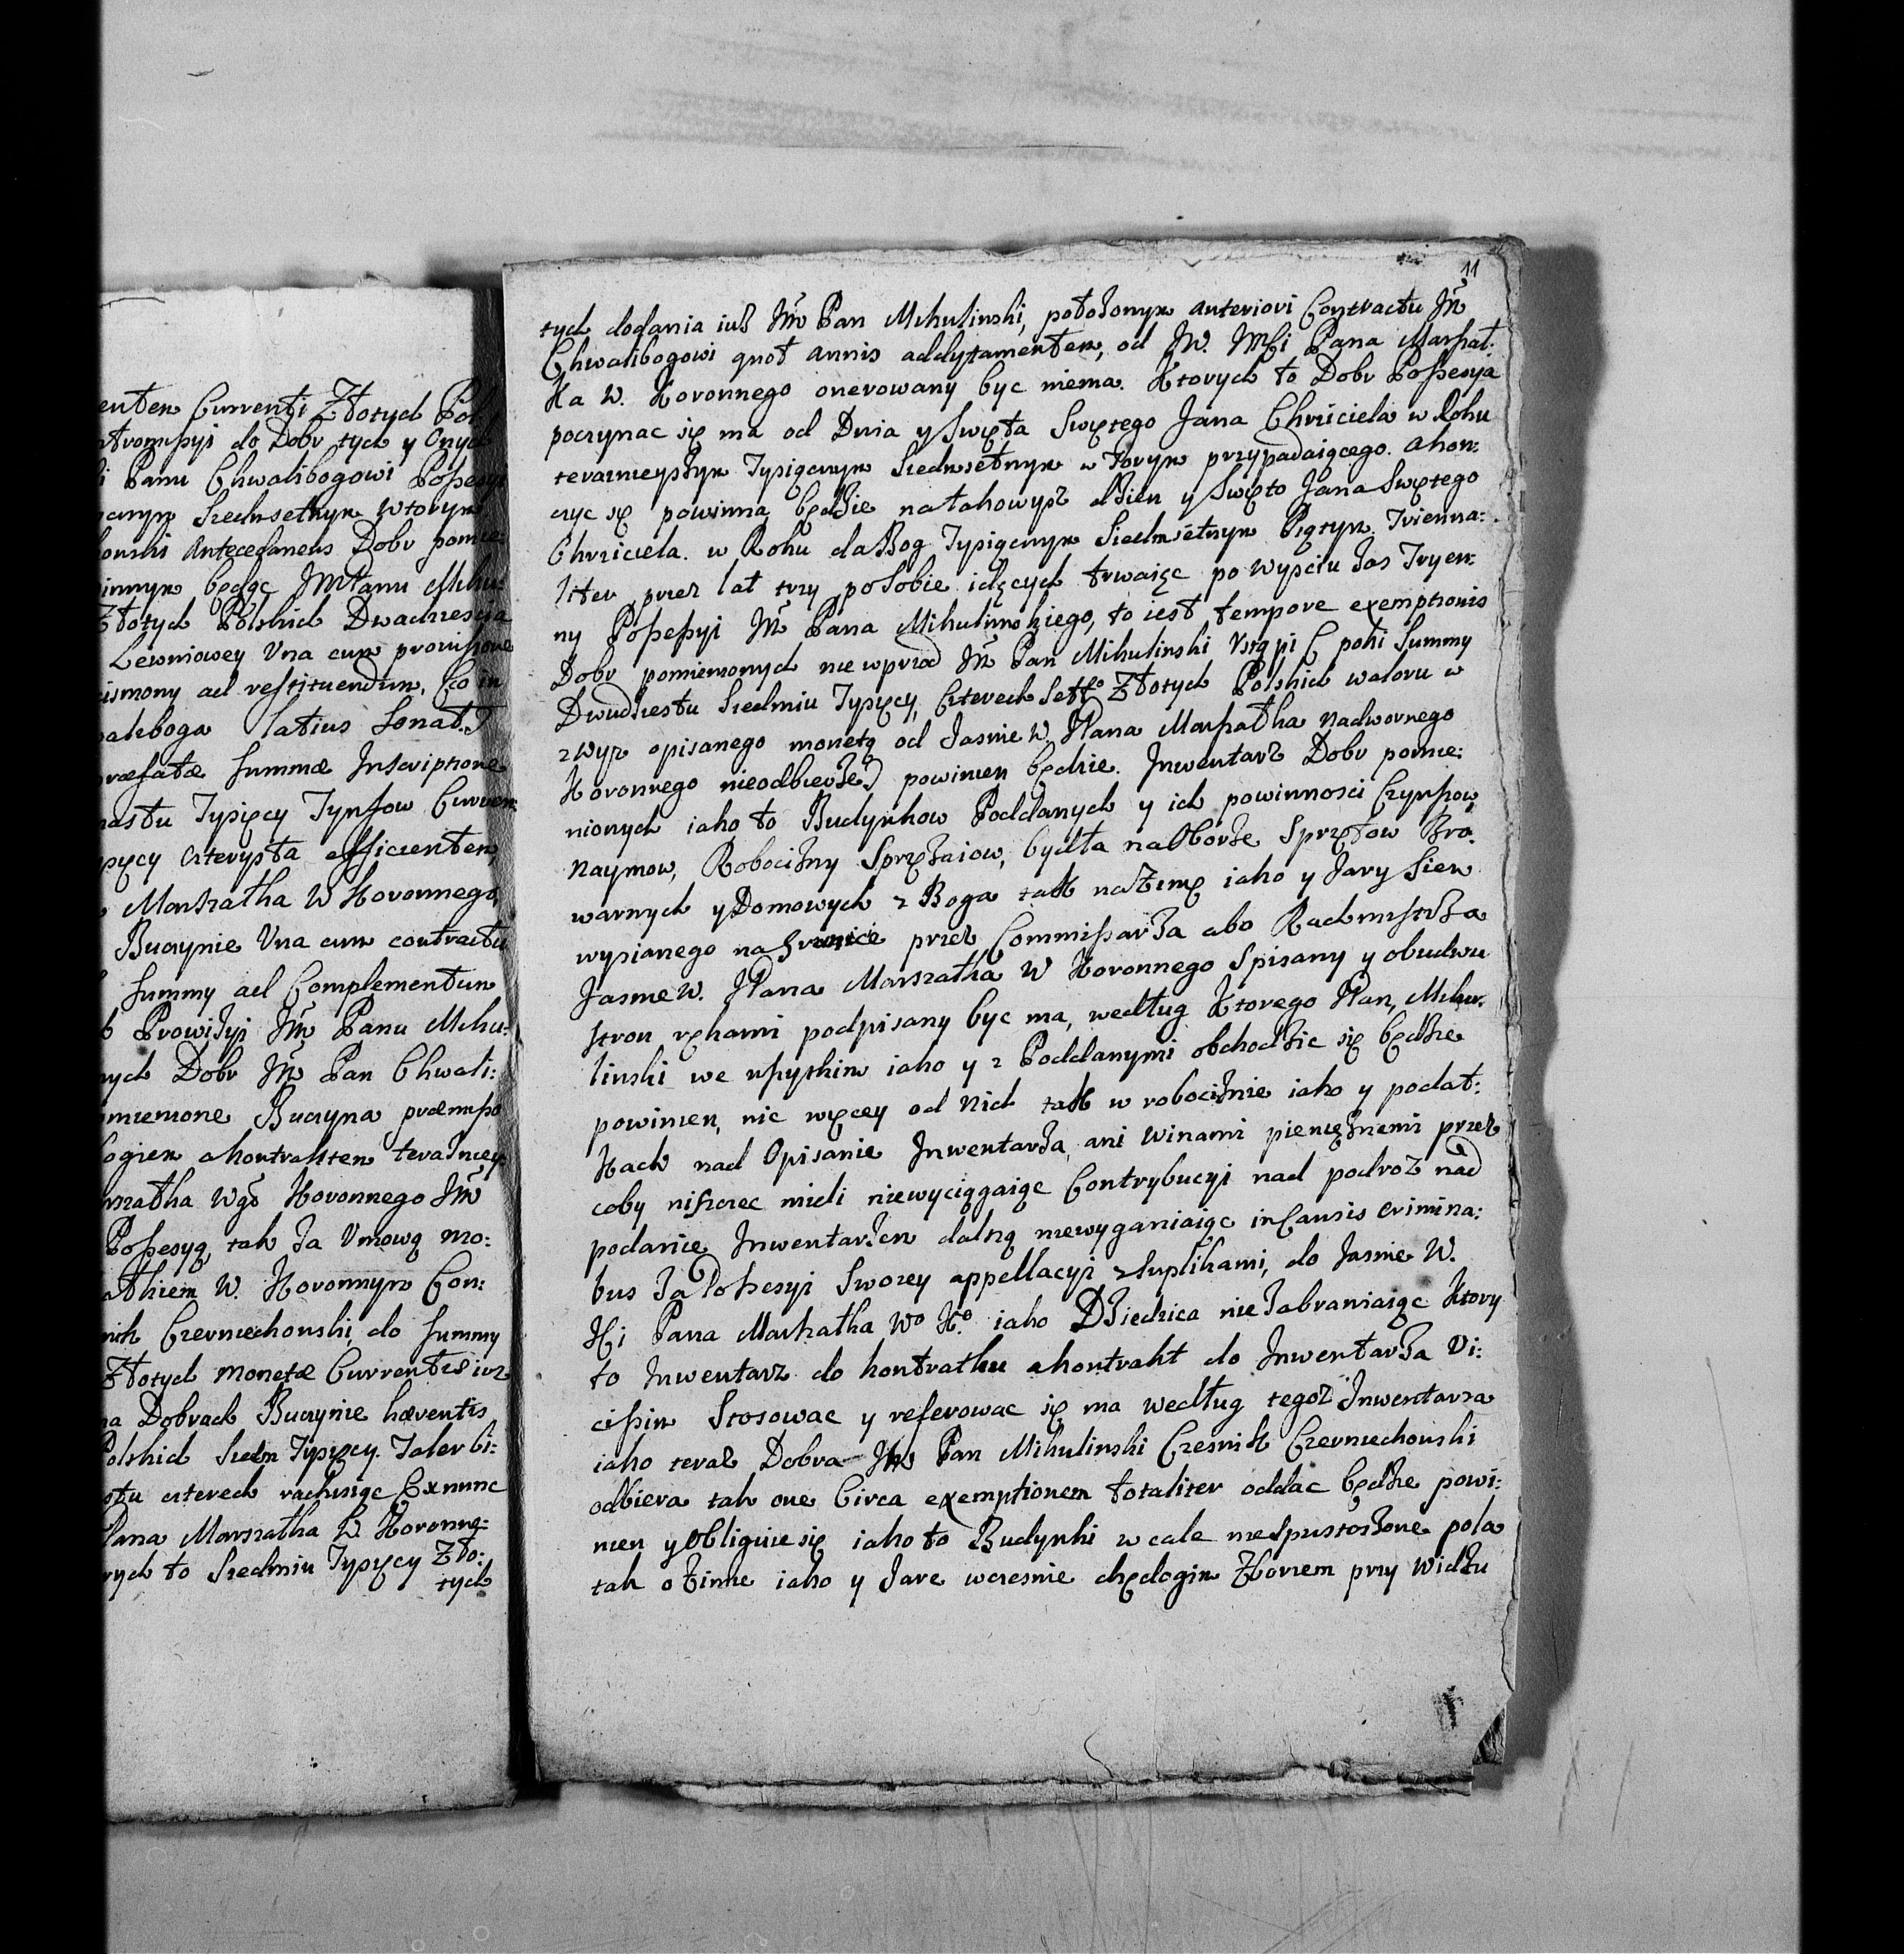 enten Currenti Złotych Pol
ntromssyi do Dobr tych y Onych
i Panu Chwalibogowi Possesyi
ącznym Siedmsetnym wtorym
onski Antecedaneus Dobr pomie:
innym będąc JMPanu Miku:
Złotych Polskich Dwadziescia
Lewniowey Vna cum provisione
ismony ad restituendum. Co in
aliboga latius Sonat.)
præfatæ Summæ Inscriptione
nastu Tysięcy Tynfow Curren
ysięcy czterysta efficientem
Marszałka W Koronnego
Buczynie Vna cum contractu
Summy ad Complementum
Prowizyi Jm̃ Panu Miku:
nych Dobr Jm̃ Pan Chwali:
mienione Buczyna præmisso
logiem akontraktem terazniey
rszałka Wgo Koronnego Jm̃
Possesyą, tak za Vmową mo:
ałkiem W. Koronnym Con:
nik Czerniechowski, do Summy
Złotych monetæ Currentis iuz
na Dobrach Buczynie hærentis
Polskich Siedm Tysięcy. Taler bi:
stu czterech rachuiąc Exnunc
Pana Marszałka W. Koronne:
rych to Siedmiu Tysięcy Zło:
tych
11
tych dodania iuz Jm̃ Pan Mikulinski, położonym anteriori Contractu Jm̃
Chwalibogowi quot annis addytamentem, od JW. JMSci Pana Marszał:
Ka W. Koronnego onerowany byc niema. Ktorych to Dobr Possesya
poczynac się ma od Dnia y Swięta Swiętego Jana Chrzciciela w Roku
teraznieyszym Tysiącznym Siedmsetnym wtorym przypadaiącego. akon:
czyc się powinna będzie natakowysz dzien y Swięto Jana Swiętego
Chrzciciela. w Roku da Bog Tysiącznym Siedmsetnym Piątym. Trienna:
liter przez lat trzy po sobie idących trwaiąc po wysciu zas Tryen:
ny Possessyi Jm̃ Pana Mikulinskiego, to iest tempore exemptionis
Dobr pomienionych nie wprzod Jm̃ Pan Mikulinski Vstąpi (poki Summy
Dwudziestu Siedmiu Tysięcy, Czterech Sett Złotych Polskich waloru w
zwysz opisanego monetą od Jasnie W. JPana Marszałka Nadwornego
Koronnego nieodbierze) powinien będzie. Jnwentarz Dobr pomie:
nionych iako to Budynkow Poddanych y ich powinnosci Czynszow,
Naymow, Robocizny Sprzężaiow, bydła na Oborze Sprzętow Bro:
warnych y Domowych z Boga tak na Zimę iako y Jary Siew
wysianego na gruncie przez Commissarza abo Rachmistrza
Jasnie W. JPana Marszałka W Koronnego Spisany y obudwu
stron rękami podpisany byc ma, według Ktorego JPan, Miku:
linski we wszytkim iako y z Poddanymi obchodzic się będzie
powinien, nic więcey od Nich tak w robociznie iako y podat:
Kach nad Opisanie Jnwentarza, ani winami pieniężnemi przez
coby niszczec mieli niewyciągaiąc Contrybucyi nad podroz nad
podanie Jnwentarzem dalszą niewyganiaiąc in Causis crimina:
bus za Possesyi Swoiey appellacyi zsuplikami, do Jasnie W.
JKi Pana Marszałka Wo Ko. iako Dziedzica nie zabraniaiąc Ktory
to Jnwentarz do kontraktu akontrakt do Jnwentarza Vi:
cissim Stosowac y referowac się ma według tegoz Jnwentarza
iako teraz Dobra Jm̃ Pan Mikulinski Czesnik Czerniechowski
odbiera tak one Circa exemptionem totaliter oddac będzie powi:
nien y Obliguie się iako to Budynki w cale niespustoszone pola
tak ozime iako y Jare wczesnie chędogim Zbozem przy Widzu